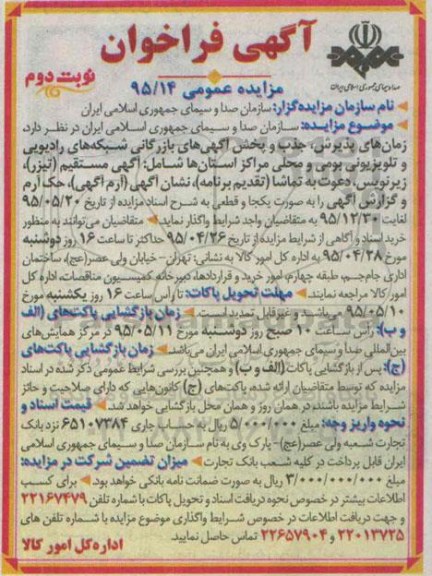 آگهی فراخوان
صدا و سیمای جمهوری اسلامی ایران
نوبت دوم
مزایده عمومی ۹۵/۱۴
نام سازمان مزایده‌گزار: سازمان صدا و سیمای جمهوری اسلامی ایران
موضوع مزایده: سازمان صدا و سیمای جمهوری اسلامی ایران در نظر دارد،
زمان‌های پذیرش، جذب و پخش آگهی‌های بازرگانی شبکه‌های رادیویی
و تلویزیونی بومی و محلی مراکز استان‌ها شامل: آگهی مستقیم (تیزر)،
زیرنویس، دعوت به تماشا (تقدیم برنامه)، نشان آگهی (آرم آگهی)، حک آرم
و گزارش آگهی را به صورت یکجا و قطعی به شرح اسناد مزایده از تاریخ ۹۵/۰۵/۲۰
لغایت ۹۵/۱۲/۳۰ به متقاضیان واجد شرایط واگذار نماید. متقاضیان می‌توانند به منظور
خرید اسناد و آگاهی از شرایط مزایده از تاریخ ۹۵/۰۴/۲۶ حداکثر تا ساعت ۱۶ روز دوشنبه
مورخ ۹۵/۰۴/۲۸ به اداره کل امور کالا به نشانی: تهران- خیابان ولی عصر(عج)، ساختمان
اداری جام‌جم، طبقه چهارم، امور خرید و قراردادها، دبیرخانه کمیسیون مناقصات، اداره کل
امور کالا مراجعه نمایند. مهلت تحویل پاکات: تا رأس ساعت ۱۶ روز یکشنبه مورخ
۹۵/۰۵/۱۰ می‌باشد و غیر قابل تمدید است. زمان بازگشایی پاکت‌های (الف
و ب): رأس ساعت ۱۰ صبح روز دوشنبه مورخ ۹۵/۰۵/۱۱ در مرکز همایش‌های
بین‌المللی صدا و سیمای جمهوری اسلامی ایران می‌باشد. زمان بازگشایی پاکت‌های
(ج): پس از بازگشایی پاکات (الف و ب) و همچنین بررسی شرایط عمومی ذکر شده در اسناد
مزایده که توسط متقاضیان ارائه شده، پاکت‌های (ج) کانون‌هایی که دارای صلاحیت و حائز
شرایط مزایده باشند در همان روز و همان محل بازگشایی خواهد شد. قیمت اسناد و
نحوه واریز وجه: مبلغ ۵/۰۰۰/۰۰۰ ریال به حساب جاری ۶۵۱۰۷۳۸۴ نزد بانک
تجارت شعبه ولی عصر(عج)- پارک وی به نام سازمان صدا و سیمای جمهوری اسلامی
ایران قابل پرداخت در کلیه شعب بانک تجارت میزان تضمین شرکت در مزایده:
مبلغ ۳/۰۰۰/۰۰۰/۰۰۰ ریال به صورت ضمانت نامه بانکی خواهد بود. برای کسب
اطلاعات بیشتر در خصوص نحوه دریافت اسناد و تحویل پاکات با شماره تلفن ۲۲۱۶۷۴۷۹
و جهت دریافت اطلاعات در خصوص شرایط واگذاری موضوع مزایده با شماره تلفن های
۲۲۰۱۳۷۲۵ و ۲۲۶۵۷۹۰۴ تماس حاصل نمایید.
اداره کل امور کالا